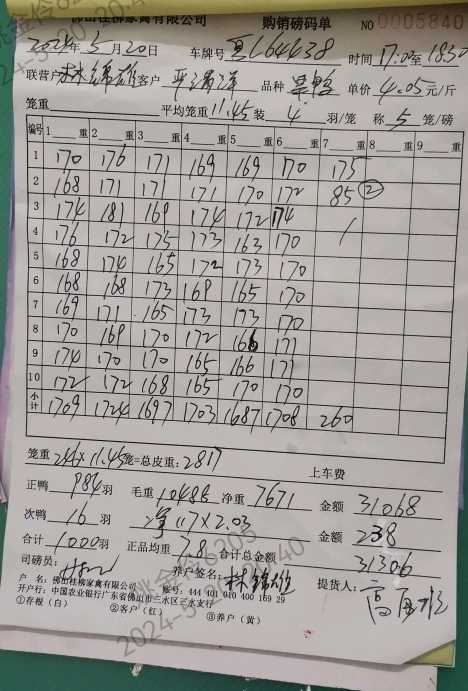 佛山桂柳家禽有限公司 购销磅码单 NO 0005840
2024年5月20日 车牌号 L64438 时间 17:00至1830
联营户 林锦雄 客户 品种 单价 4.05元/斤
笼重 平均笼重 11.45 装 4 羽/笼 称 5 笼/磅
编号 1 重 2 重 3 重 4 重 5 重 6 重 7 重 8 重 9 重
1 170 176 171 169 169 170 175
2 168 171 171 171 170 172 85 ②
3 174 181 169 174 172 174 /
4 176 172 175 173 163 170
5 168 174 165 172 173 170
6 168 168 173 168 165 170
7 169 171 165 173 173 170
8 170 169 170 172 166 171
9 174 170 170 165 166 171
10 172 172 168 165 170 170
小计 1709 1724 1697 1703 1687 1708 260
笼重 246×11.45 笼=总皮重:2817 上车费
正鸭 984 羽 毛重 10488 净重 7671 金额 31068
次鸭 16 羽 净 117×2.03 金额 238
合计 1000 羽 正品均重 7.8 合计总金额 31306
司磅员: 养户签名: 林锦雄 提货人:
户 名:佛山桂柳家禽有限公司 账号:444 401 010 400 169 29
开户行:中国农业银行广东省佛山市三水区三水支行
①存根(白) ②客户(红) ③养户(黄)